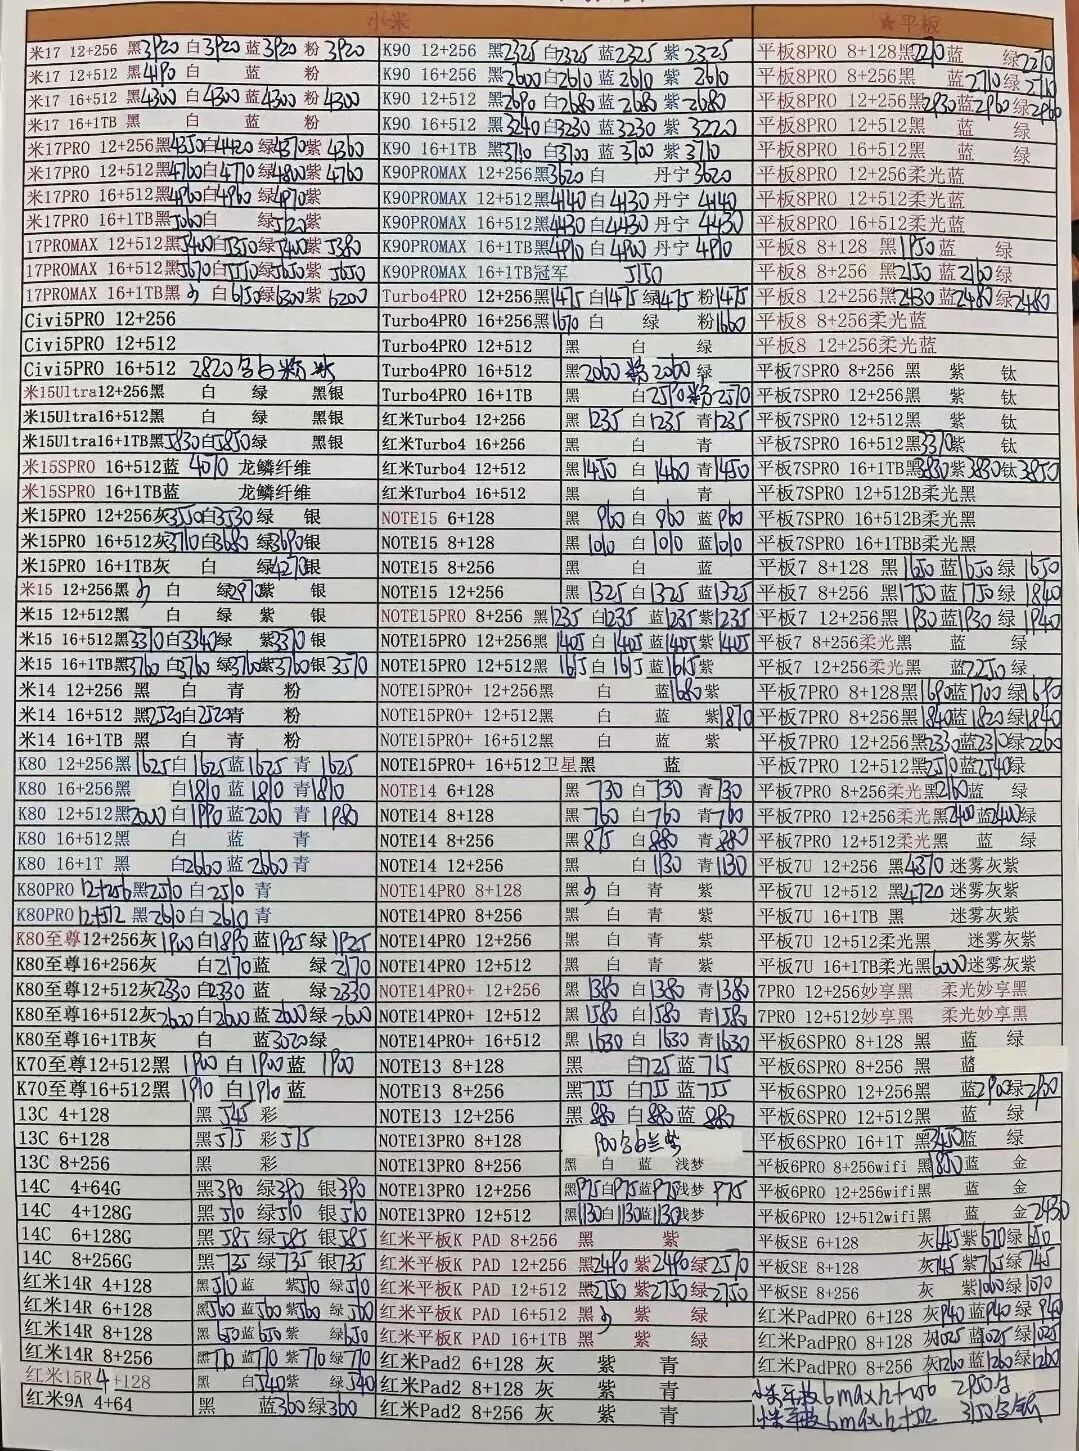 小米
米17 12+256 黑3920 白3920 蓝3920 粉3920
米17 12+512 黑4190 白 蓝 粉
米17 16+512 黑4300 白4300 蓝4300 粉4300
米17 16+1TB 黑 白 蓝 粉
米17PRO 12+256黑4350白4420绿4370紫4360
米17PRO 12+512黑4760白4770绿4800紫4760
米17PRO 16+512黑4960白4960绿4970紫
米17PRO 16+1TB黑5060白 绿5120紫
17PROMAX 12+512黑5400白5350绿5400紫5380
17PROMAX 16+512黑5670白5550绿5650紫5650
17PROMAX 16+1TB黑 白6150绿6300紫6200
Civi5PRO 12+256
Civi5PRO 12+512
Civi5PRO 16+512 2820
米15Ultra12+256黑 白 绿 黑银
米15Ultra16+512黑 白 绿 黑银
米15Ultra16+1TB黑5830白5850绿 黑银
米15SPRO 16+512蓝 4070 龙鳞纤维
米15SPRO 16+1TB蓝 龙鳞纤维
米15PRO 12+256灰3550白3530绿 银
米15PRO 16+512灰3710白3680绿3690银
米15PRO 16+1TB灰 白 绿4270银
米15 12+256黑 白 绿2970紫 银
米15 12+512黑 白 绿 紫 银
米15 16+512黑3370白3340绿 紫3370银
米15 16+1TB黑3760白3760绿3760紫3760银3570
米14 12+256 黑 白 青 粉
米14 16+512 黑2520白2520青 粉
米14 16+1TB 黑 白 青 粉
K80 12+256黑1625白1625蓝1625 青 1625
K80 16+256黑 白1810蓝1810青1810
K80 12+512黑2000白1990蓝2010青 1980
K80 16+512黑 白 蓝 青
K80 16+1T 黑 白2660蓝2660青
K80PRO 12+256黑2510白2510青
K80PRO 12+512 黑2610白2610青
K80至尊12+256灰1900白1890蓝1925绿1925
K80至尊16+256灰 白2170蓝 绿2170
K80至尊12+512灰2330白2330蓝 绿2330
K80至尊16+512灰2600白2600蓝2600绿2600
K80至尊16+1TB灰 白 蓝3020绿
K70至尊12+512黑 1900白1900蓝 1900
K70至尊16+512黑 1910白1910蓝
13C 4+128 黑545彩
13C 6+128 黑575彩575
13C 8+256 黑 彩
14C 4+64G 黑390绿390银390
14C 4+128G 黑510绿510银510
14C 6+128G 黑585绿585银585
14C 8+256G 黑735绿735银735
红米14R 4+128 黑510蓝 紫510绿510
红米14R 6+128 黑560蓝560紫560绿560
红米14R 8+128 黑650蓝650紫 绿650
红米14R 8+256 黑770蓝770紫770绿770
红米15R 4+128 黑 白540紫 绿540
红米9A 4+64 黑 蓝360绿360
K90 12+256 黑2325白2325蓝2325紫2325
K90 16+256 黑2600白2610蓝2610紫2610
K90 12+512 黑2690白2680蓝2680紫2680
K90 16+512 黑3240白3230蓝3230紫3220
K90 16+1TB 黑3710白3700蓝3700紫3710
K90PROMAX 12+256黑3620白 丹宁3620
K90PROMAX 12+512黑4140白4130丹宁4140
K90PROMAX 16+512黑4430白4430丹宁4430
K90PROMAX 16+1TB黑4910白4900丹宁4910
K90PROMAX 16+1TB冠军 5150
Turbo4PRO 12+256黑1475白1475绿1475粉1475
Turbo4PRO 16+256黑1670白 绿 粉1660
Turbo4PRO 12+512 黑 白 绿
Turbo4PRO 16+512 黑2060粉2060绿
Turbo4PRO 16+1TB 黑 白2590粉2570
红米Turbo4 12+256 黑1235白1235青1235
红米Turbo4 16+256 黑 白 青
红米Turbo4 12+512 黑1450白1460青1450
红米Turbo4 16+512 黑 白 青
NOTE15 6+128 黑960白960蓝960
NOTE15 8+128 黑1010白1010蓝1010
NOTE15 8+256 黑 白 蓝
NOTE15 12+256 黑1325白1325蓝1325
NOTE15PRO 8+256 黑1235白1235蓝1235紫1235
NOTE15PRO 12+256黑1405白1405蓝1405紫1405
NOTE15PRO 12+512黑1615白1615蓝1615紫
NOTE15PRO+ 12+256黑 白 蓝1680紫
NOTE15PRO+ 12+512黑 白 蓝 紫1870
NOTE15PRO+ 16+512黑 白 蓝 紫
NOTE15PRO+ 16+512卫星黑 蓝
NOTE14 6+128 黑730白730青730
NOTE14 8+128 黑760白760青760
NOTE14 8+256 黑875白880青880
NOTE14 12+256 黑 白1130青1130
NOTE14PRO 8+128 黑 白 青 紫
NOTE14PRO 8+256 黑 白 青 紫
NOTE14PRO 12+256 黑 白 青 紫
NOTE14PRO 12+512 黑 白 青 紫
NOTE14PRO+ 12+256 黑1380白1380青1380
NOTE14PRO+ 12+512 黑1580白1580青1580
NOTE14PRO+ 16+512 黑1630白1630青1630
NOTE13 8+128 黑 白725蓝715
NOTE13 8+256 黑755白755蓝755
NOTE13 12+256 黑880白880蓝880
NOTE13PRO 8+128 900
NOTE13PRO 8+256 黑 白 蓝 浅梦
NOTE13PRO 12+256 黑975白975蓝975浅梦975
NOTE13PRO 12+512 黑1130白1130蓝1130浅梦
红米平板K PAD 8+256 黑 紫
红米平板K PAD 12+256 黑2490紫2490绿2570
红米平板K PAD 12+512 黑2750紫2750绿2750
红米平板K PAD 16+512 黑 紫 绿
红米平板K PAD 16+1TB 黑 紫 绿
红米Pad2 6+128 灰 紫 青
红米Pad2 8+128 灰 紫 青
红米Pad2 8+256 灰 紫 青
★平板
平板8PRO 8+128黑2210蓝 绿2270
平板8PRO 8+256黑 蓝2710绿2710
平板8PRO 12+256黑2930蓝2960绿2960
平板8PRO 12+512黑 蓝 绿
平板8PRO 16+512黑 蓝 绿
平板8PRO 12+256柔光蓝
平板8PRO 12+512柔光蓝
平板8PRO 16+512柔光蓝
平板8 8+128 黑1950蓝 绿
平板8 8+256 黑2150蓝2160绿
平板8 12+256黑2430蓝2480绿2480
平板8 8+256柔光蓝
平板8 12+256柔光蓝
平板7SPRO 8+256 黑 紫 钛
平板7SPRO 12+256黑 紫 钛
平板7SPRO 12+512黑 紫 钛
平板7SPRO 16+512黑3370紫 钛
平板7SPRO 16+1TB黑3830紫3830钛3850
平板7SPRO 12+512B柔光黑
平板7SPRO 16+512B柔光黑
平板7SPRO 16+1TBB柔光黑
平板7 8+128 黑1650蓝1650绿1650
平板7 8+256 黑1750蓝1750绿1840
平板7 12+256 黑1930蓝1930绿1940
平板7 8+256柔光黑 蓝 绿
平板7 12+256柔光黑 蓝2250绿
平板7PRO 8+128黑1690蓝1700绿1690
平板7PRO 8+256黑1840蓝1820绿1840
平板7PRO 12+256黑2330蓝2310绿2260
平板7PRO 12+512黑2510蓝2540绿
平板7PRO 8+256柔光黑2160蓝 绿
平板7PRO 12+256柔光黑2400蓝2400绿
平板7PRO 12+512柔光黑 蓝 绿
平板7U 12+256 黑4370迷雾灰紫
平板7U 12+512 黑4720迷雾灰紫
平板7U 16+1TB 黑 迷雾灰紫
平板7U 12+512柔光黑 迷雾灰紫
平板7U 16+1TB柔光黑6000迷雾灰紫
7PRO 12+256妙享黑 柔光妙享黑
7PRO 12+512妙享黑 柔光妙享黑
平板6SPRO 8+128 黑 蓝 绿
平板6SPRO 8+256 黑 蓝
平板6SPRO 12+256黑 蓝2900绿2900
平板6SPRO 12+512黑 蓝 绿
平板6SPRO 16+1T 黑3450蓝 绿
平板6PRO 8+256wifi 黑1850蓝 金
平板6PRO 12+256wifi黑 蓝 金
平板6PRO 12+512wifi黑 蓝 金2430
平板SE 6+128 灰645紫670绿650
平板SE 8+128 灰745紫765绿745
平板SE 8+256 灰 紫1000绿1070
红米PadPRO 6+128 灰940蓝940绿940
红米PadPRO 8+128 灰1025蓝1025绿1025
红米PadPRO 8+256 灰1260蓝1260绿1260
小米平板6max12+256 2950
小米平板6max12+512 3150